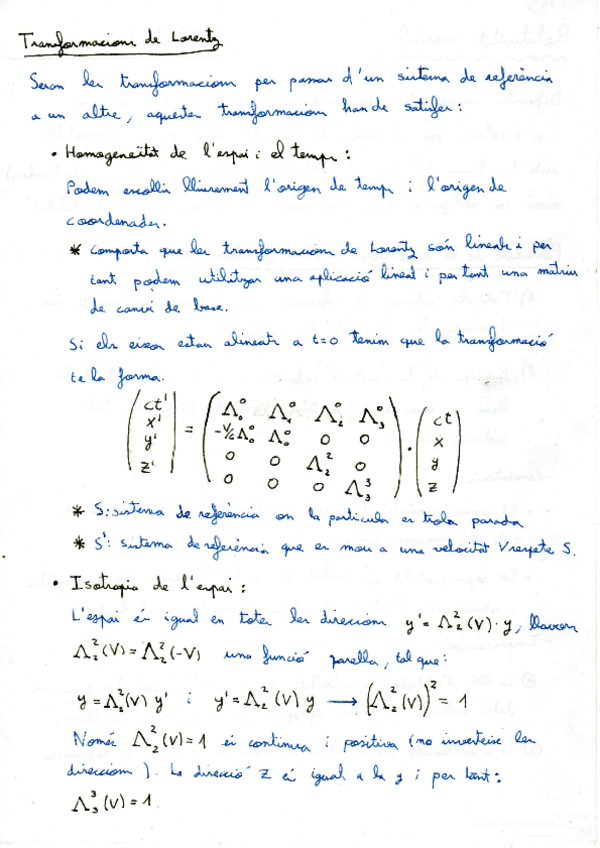 Transformacions de Lorentz
Seran les transformacions per passar d'un sistema de referència
a un altre, aquestes transformacions han de satisfer:
• Homogeneïtat de l'espai i el temps:
Podem escollir lliurement l'origen de temps i l'origen de
coordenades.
* comporta que les transformacions de Lorentz són lineals i per
tant podem utilitzar una aplicació lineal i per tant una matriu
de canvi de base.
Si els eixos estan alineats a t=0 tenim que la transformació
te la forma.
(ct') = (Λ⁰₀ Λ⁰₁ Λ⁰₂ Λ⁰₃) · (ct)
(x') (-V/c Λ⁰₀ Λ⁰₀ 0 0) (x)
(y') (0 0 Λ²₂ 0) (y)
(z') (0 0 0 Λ³₃) (z)
* S: sistema de referència on la particula es troba parada
* S': sistema de referència que es mou a una velocitat V respecte S.
• Isotropia de l'espai:
L'espai és igual en totes les direccions y' = Λ²₂(V)·y, llavors
Λ²₂(V) = Λ²₂(-V) una funció parella, tal que:
y = Λ²₂(V) y' i y' = Λ²₂(V) y → (Λ²₂(V))² = 1
Només Λ²₂(V) = 1 és continua i positiva (no inverteix les
direccions). La direcció z és igual a la y i per tant:
Λ³₃(V) = 1